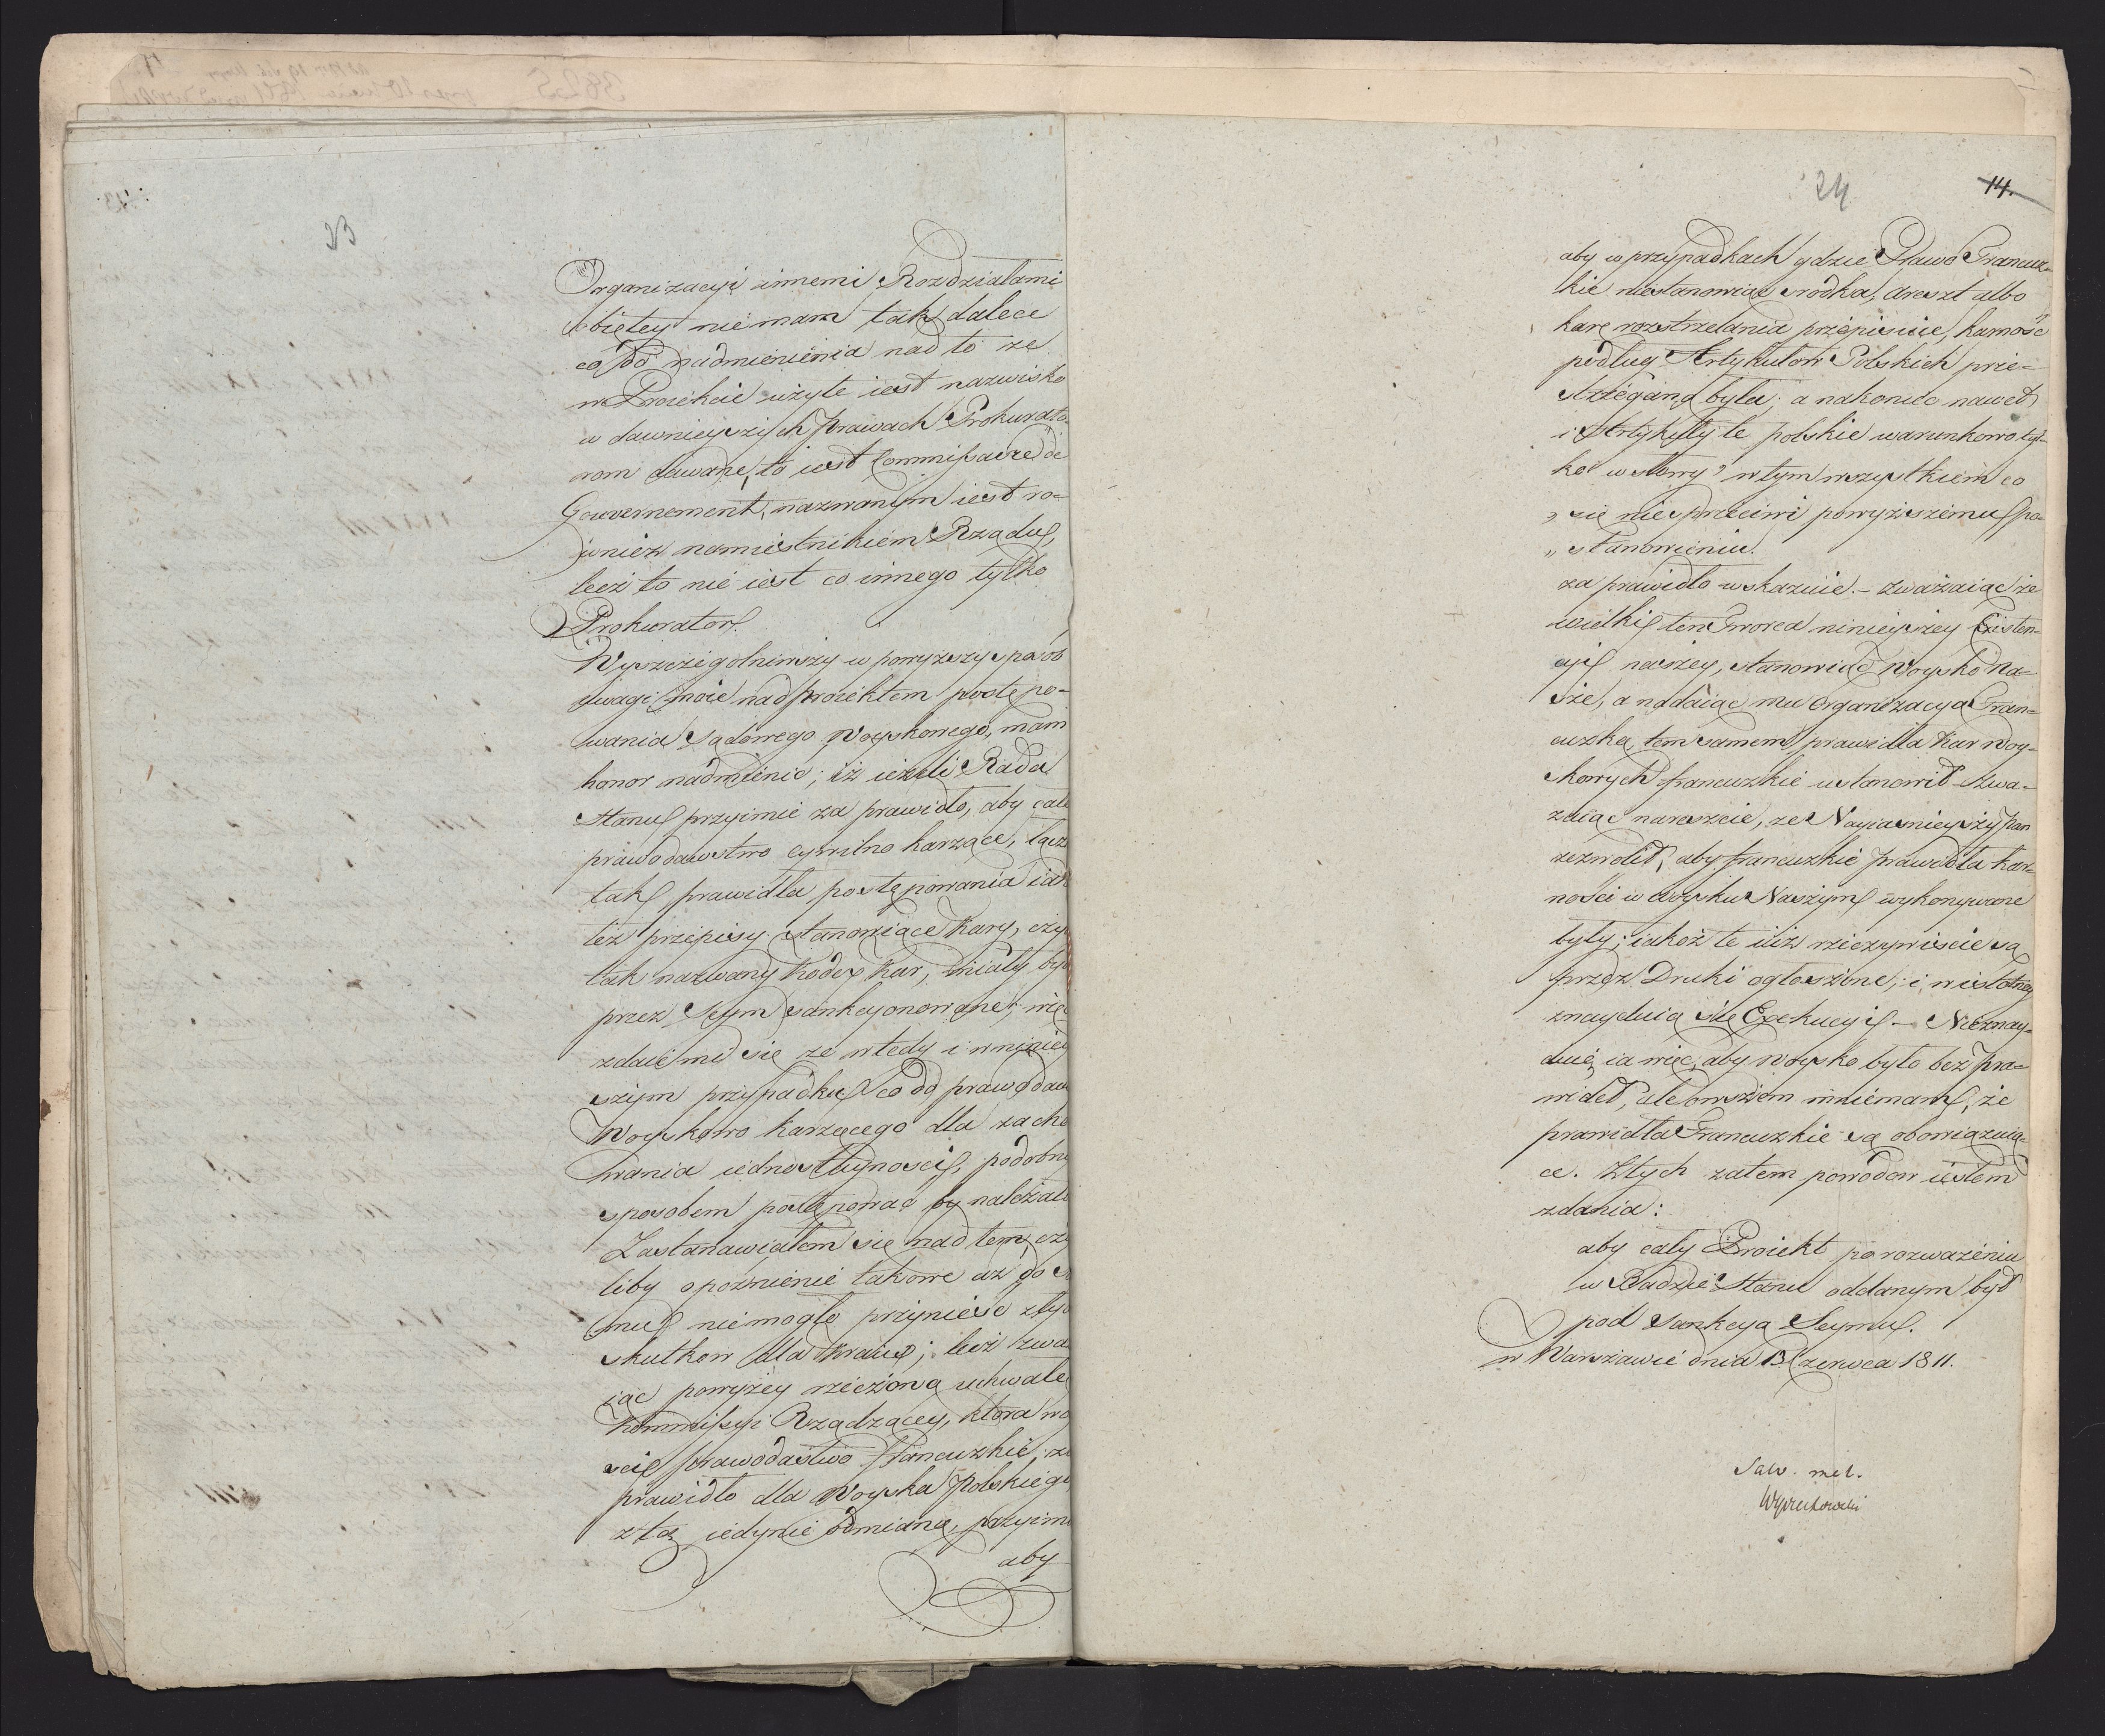 23
Organizacyi innemi Rozdziałami
obiętey nie mam tak dalece
co do nadmienienia nad to że
w Proiekcie użyte iest nazwisko
w dawnieyszych Prawach Prokurato-
rom dawane, to iest Commissaire de
Gouvernement, nazwanym iest ro-
wnież namiestnikiem Rządu,
lecz to nie iest co innego tylko
Prokurator.
Wyszczegolniwszy w powyższy sposób
uwagi moie nad proiektem postępo-
wania Sądowego Woyskowego, mam
honor nadmienić; iż ieżeli Rada
Stanu przyimie za prawidło, aby całe
prawodawstwo cywilno karzące, tacz
tak prawidła postępowania iak
też przepisy stanowiące kary, czy
tak nazwany Kodex Kar, miały by
przez Seym sankcyonowane; wię
zdaie mi się że wtedy i w niniey
szym przypadku co do prawodaw
Woyskowo karzącego dla zacho
wania iednostayności, podobny
sposobem postępować by należało
Zastanawiałem się nad tem, cży
liby opoźnienie takowe aż do S
mu niemogło przynieść złyc
skutkow dla Kraiu; lecz zwa
żąc powyżey rzeczoną uchwałę
Kommissyi Rządzącey, ktora wo
ści prawodastwo francuzkie, za
prawidło dla Woyska Polskiego
z tą iedynie odmianą, przyim
aby
24
14.
aby w przypadkach gdzie Prawo Francuz-
kie niestanowiąc srodka, areszt albo
karę rozstrzelania przepisuie, karność
podług Artykułow Polskich prze-
strzeganą była; a nakoniec nawet
i Artykuły te polskie warunkowo tyl-
ko w słowy „ w tym wszystkiem co
„ się nie przeciwi powyższemu po-
„ stanowieniu.
za prawidło wskazuie. – Zważaiąc że
wielki ten Tworca ninieyszey Existen-
cyi naszey, stanowiąc Woysko Na-
sze, a nadaiąc mu organizacyą Fran-
cuzką, tem samem prawidła kar woy-
skowych francuzkie ustanowił Zwa-
żaiąc nareszcie, że Nayiaśnieyszy Pan
zezwolił, aby francuzkie prawidła kar-
ności w woysku Naszym wykonywane
były; iakoż te iuż rzeczywiście są
przez Druki ogłoszone, i w istotney
znayduią się Exekucyi – Nieznay-
duię ia więc, aby woysko było bez pra-
wideł, ale owszem mniemam, że
prawidła Francuzkie są obowiązuią-
ce. Z tych zatem powodow iestem
zdania:
aby cały Proiekt po rozważeniu
w Radzie Stanu oddanym był
pod sankcyą Seymu.
w Warszawie dnia 13 Czerwca 1811.
Salv. mel.
Wyczechowski